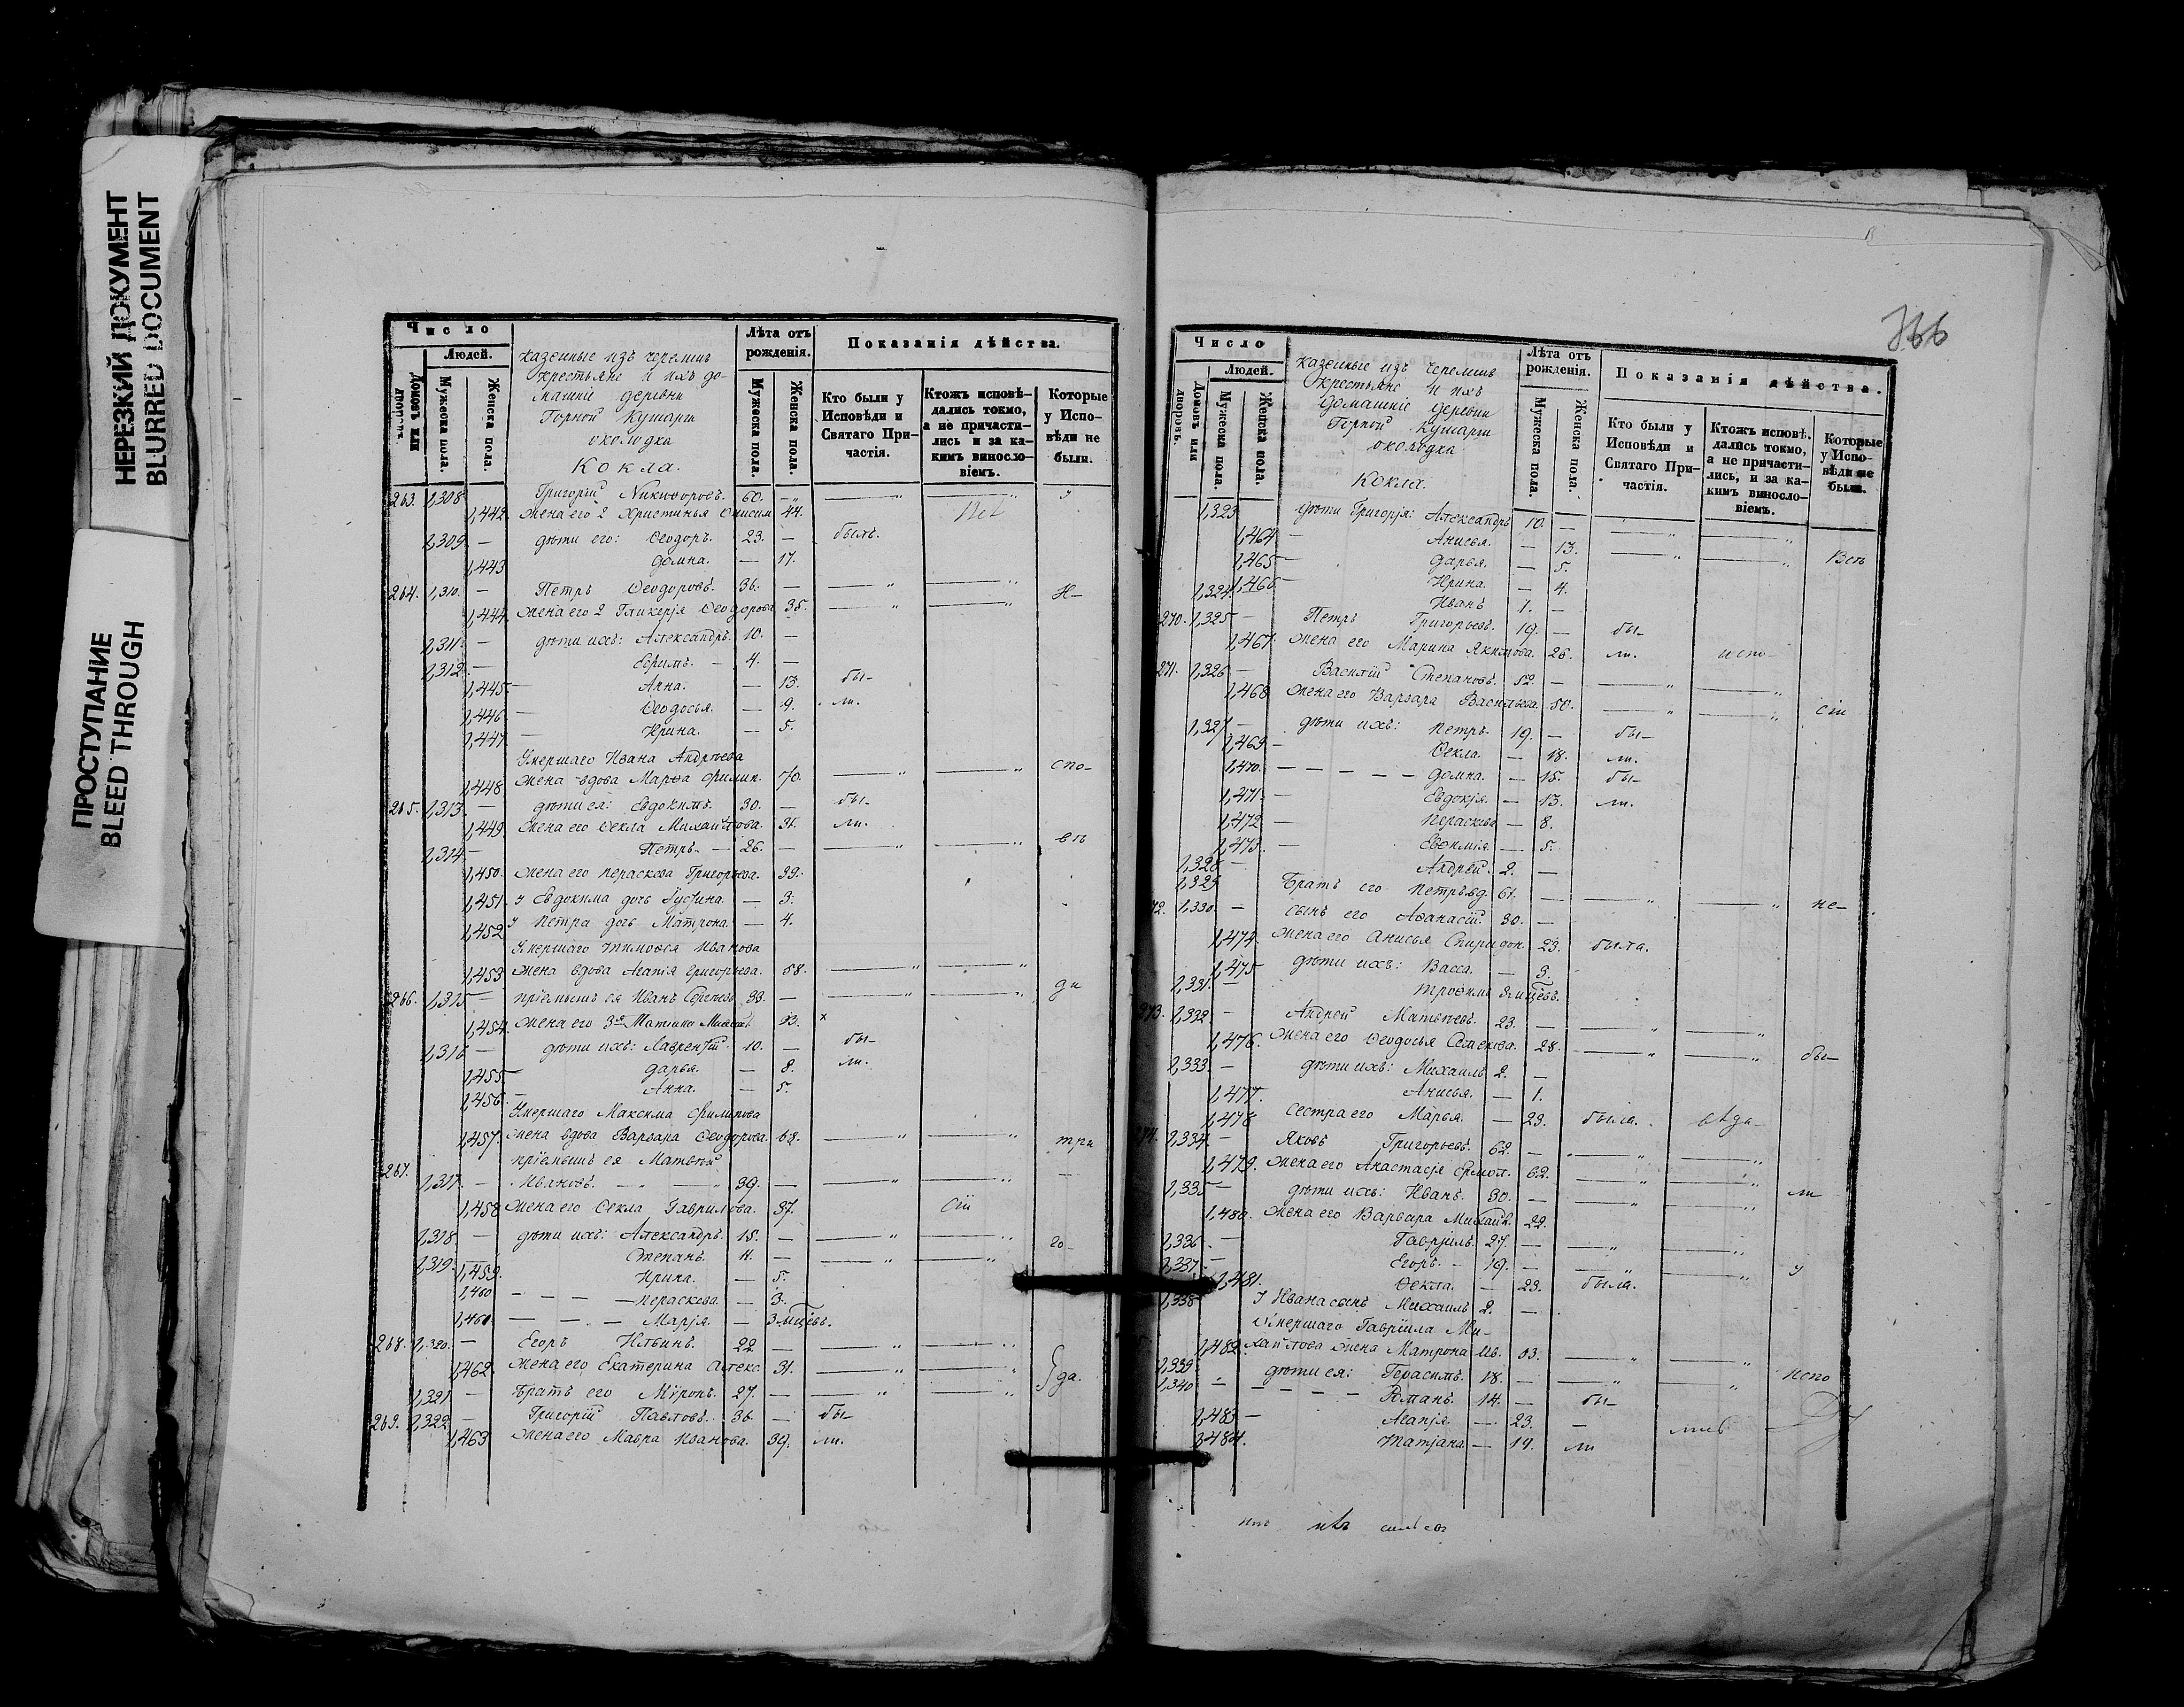 НЕРЕЗКИЙ ДОКУМЕНТ
BLURRED DOCUMENT
ПРОСТУПАНИЕ
BLEED THROUGH
Число
Людей.
Домовъ или дворовъ.
Мужеска пола.
Женска пола.
казенные изъ черемис
крестьяне и ихъ до-
машніе деревни
Горной Кушерги
околодка
Кокла.
Лѣта отъ рожденія.
Мужеска пола.
Женска пола.
Показанія дѣйства.
Кто были у Исповѣди и Святаго Причастія.
Ктожъ исповѣдались токмо, а не причастились и за какимъ винословіемъ.
Которые у Исповѣди не были.
263. 1,308 Григорій Никифоровъ. 60. —
1,442. Жена его 2 Христинья Онисим. 44.
1,309 — дѣти его: Ѳеодоръ. 23. — былъ.
1,443 Домна. — 17.
264. 1,310. — Петръ Ѳеодоровъ. 36. —
1,444. Жена его 2 Гликерія Ѳеодорова 35.
1,311 — дѣти ихъ: Александръ. 10. —
1,312 — Ефимъ. — 4. —
1,445 — Анна. — 13. бы-
1,446 — Ѳеодосья. — 9. ли.
1,447 — Ирина. — 5.
Умершаго Ивана Андреева
1,448 жена вдова Марѳа Филип. 70. спо-
265. 1,313 — дѣти ея: Евдокимъ. 30. — бы-
1,449. Жена его Ѳекла Михайлова. 31. ли.
1,314 — Петръ. — 26. —
1,450. Жена его Параскева Григорьева. 33.
1,451. У Евдокима дочь Іустина. — 3.
1,452 У Петра дочь Матрона. — 4.
Умершаго Тимоѳея Иванова
1,453 жена вдова Агапія Григорьева. 58.
266. 1,315 — пріемышъ ея Иванъ Сергѣевъ 33. —
1,454. Жена его 3я
1,316 — дѣти ихъ: Лаврентій. 10. — бы-
1,455 — Дарья. — 8. ли.
1,456. — Анна. — 5.
Умершаго Максима Филипова
1,457. жена вдова Варвара Ѳеодорова. 68.
267. пріемышъ ея Матвѣй
1,317. — Ивановъ. — 39. —
1,458 Жена его Ѳекла Гаврилова. 37.
1,318. — дѣти ихъ: Александръ. 15. —
1,319. — Степанъ. 11. —
1,459. Ирина. — 5.
1,460 — Параскева. — 3.
1,461. — Марія. — 3 мцѣв.
268. 1,320. — Егоръ Ильинъ. 22 —
1,462. Жена его Екатерина Алекс. 31.
1,321 — Братъ его Миронъ. 27. — да.
269. 1,322 — Григорій Павловъ. 36. — бы-
1,463 Жена его Мавра Иванова. 39. ли.
366
Число
Людей.
Домовъ или дворовъ.
Мужеска пола.
Женска пола.
казенные изъ черемис
крестьяне и ихъ
домашніе деревни
Горной Кушерги
околодка
Кокла.
Лѣта отъ рожденія.
Мужеска пола.
Женска пола.
Показанія дѣйства.
Кто были у Исповѣди и Святаго Причастія.
Ктожъ исповѣдались токмо, а не причастились, и за какимъ винословіемъ.
Которые у Исповѣди не были.
1,323 дѣти Григорія: Александръ 10. —
1,464 — Анисья. — 13.
1,465 — Дарья. — 5. Всѣ
1,466 — Ирина. — 4.
1,324 Иванъ 1. —
270. 1,325 — Петръ Григорьевъ. 19. — бы-
1,467. Жена его Марина Якимова. 26. ли.
271. 1,326 — Василій Степановъ. 52. —
1,468 Жена его Варвара Васильева. 50. сіи
1,327 — дѣти ихъ: Петръ. 19. — бы-
1,469 — Ѳекла. — 18. ли.
1,470. — Домна. — 15. бы-
1,471 — Евдокія. — 13. ли.
1,472 — Параскева — 8.
1,473. — Евфимія. — 5.
1,328 — Андрей. 2. —
1,329 Братъ его Петръ вд. 61. — не-
272. 1,330. — сынъ его Аѳанасій. 30. —
1,474. Жена его Анисья Спиридон. 23. была.
1,475 дѣти ихъ: Васса. — 3.
1,331. — Трофимъ
273. 1,332 — Андрей Матвѣевъ. 23. —
1,476. Жена его Ѳеодосья Семенова. 28. бы-
1,333 — дѣти ихъ: Михаилъ 2. —
1,477. Анисья. — 1.
1,478 Сестра его Марья. — 23. была.
274. 1,334. — Яковъ Григорьевъ. 62. —
1,479. Жена его Анастасія Ермол. 62.
1,335 — дѣти ихъ: Иванъ. 30. — ли
1,480. Жена его Варвара Михайл. 22.
1,336. — Гавріилъ. 27. —
1,337 — Егоръ. — 19. — у
1,481. Ѳекла. — 23. была.
1,338 У Ивана сынъ Михаилъ 2. —
Умершаго Гавріила Ми-
1,482 хайлова жена Матрона Ив. 53.
1,339 дѣти ея: Герасимъ. 18. — испо
1,340 — Романъ. 14. — бы-
1,483 — Агапія. — 23.
1,484. Татіана. — 19. ли